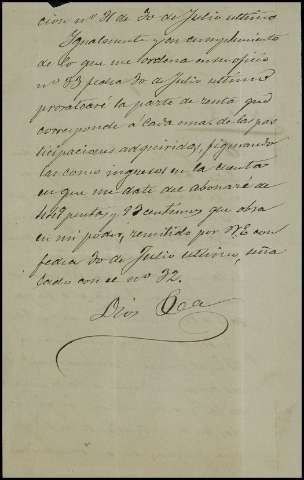 cion nº 31 de 30 de Julio ultimo
Igualmente y en cumplimiento
de lo que me ordena en su oficio
nº 33 fecha 30 de Julio ultimo
proratearé la parte de renta que
corresponde a cada una de las par
ticipaciones adquiridas, figurando
las como ingresos en la cuenta
en que me date del abonaré de
pesetas y 93 centimos que obra
en mi poder, remitido por V.E. con
fecha 30 de Julio ultimo, seña
lado con el nº 32.
Dios &a &a